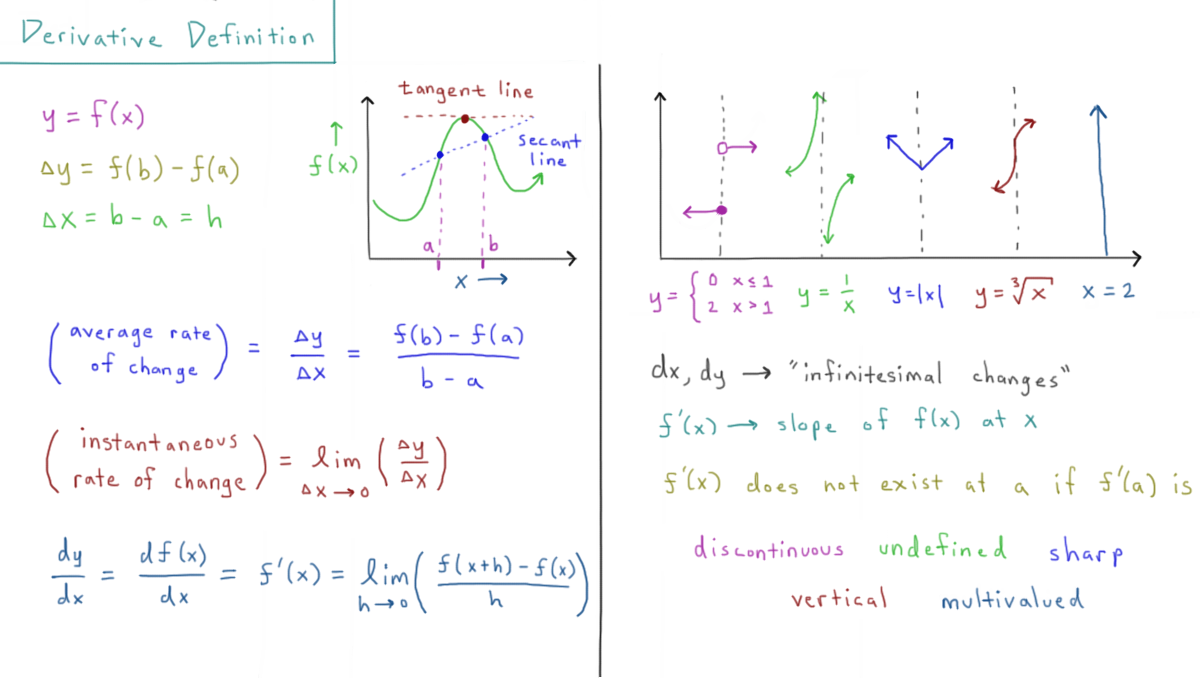 Derivative Definition
y = f(x)
Δy = f(b) - f(a)
Δx = b - a = h
tangent line
secant
line
↑
f(x)
a
b
x →
(average rate of change) = Δy/Δx = (f(b) - f(a))/(b - a)
(instantaneous rate of change) = lim Δx→0 (Δy/Δx)
dy/dx = df(x)/dx = f'(x) = lim h→0 ((f(x+h) - f(x))/h)
y = { 0 x ≤ 1
2 x > 1
y = 1/x
y=|x|
y = ∛x
x = 2
dx, dy → "infinitesimal changes"
f'(x) → slope of f(x) at x
f'(x) does not exist at a if f'(a) is
discontinuous undefined sharp
vertical multivalued